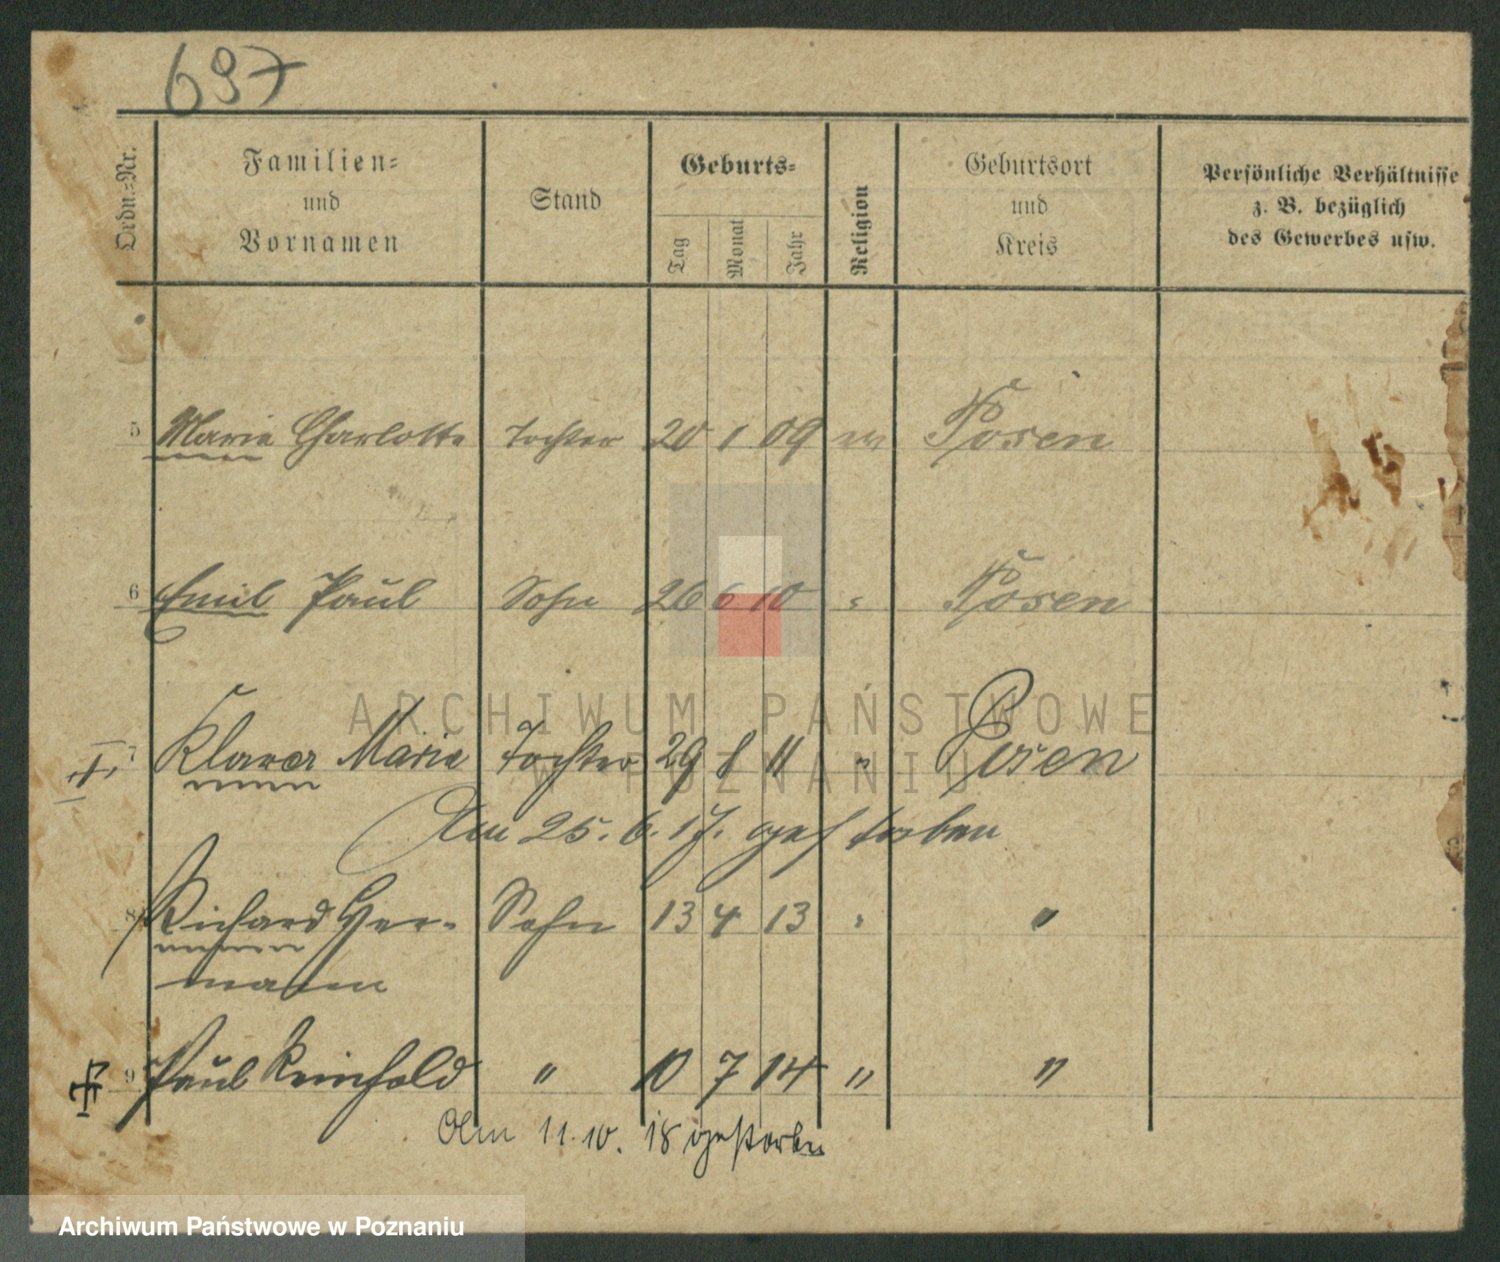 697
Ordn.-Nr.
Familien-
und
Vornamen
Stand
Geburts-
Tag
Monat
Jahr
Religion
Geburtsort
und
Kreis
Persönliche Verhältnisse
z. B. bezüglich
des Gewerbes usw.
5 Marie Charlotte Tochter 20 1 09 ev Posen
6 Emil Paul Sohn 26 6 10 " Posen
7 Klara Marie Tochter 29 8 11 " Posen
Am 25. 6. 17. gestorben
8 Richard Her- Sohn 13 4 13 " "
mann
9 Paul Reinhold " 10 7 14 " "
Am 11. 10. 18 gestorben
ARCHIWUM PAŃSTWOWE
W POZNANIU
Archiwum Państwowe w Poznaniu